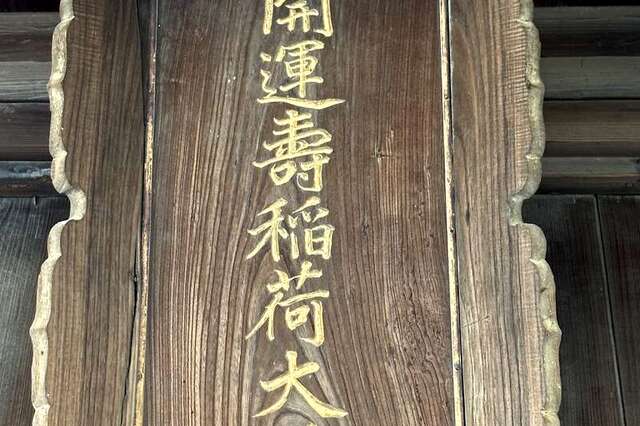 開運壽稲荷大